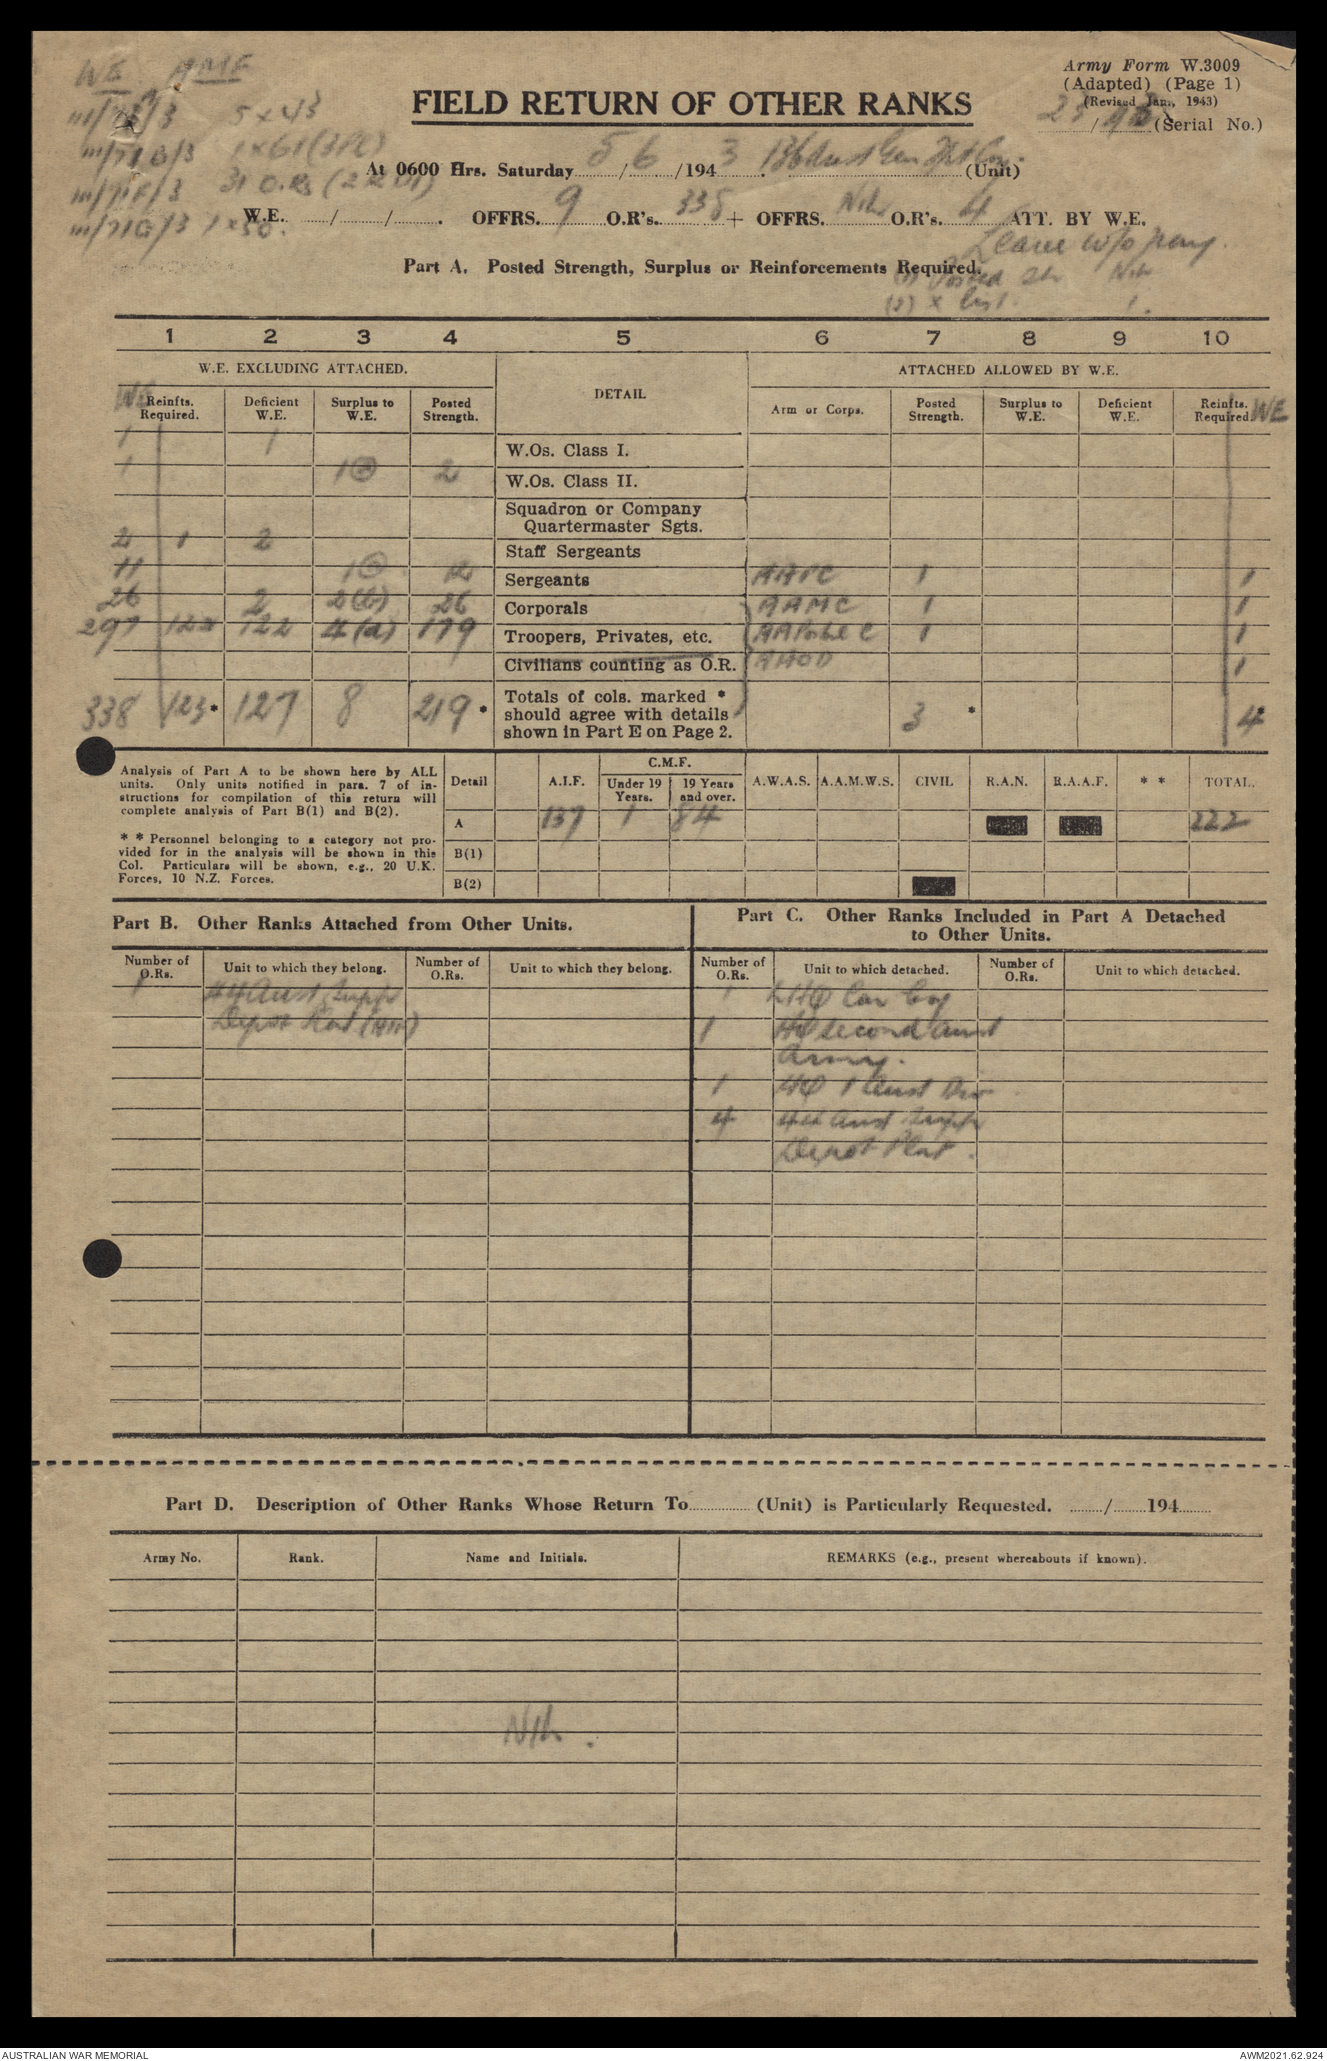 WE AMF
Army Form W.3009
(Adapted) (Page 1)
(Revised Jan., 1943)
/ (Serial No.)
FIELD RETURN OF OTHER RANKS
III/71 /3 5 x 43
III/71B/3 1 x 61 (3PL)
III/71F/3 31 O.Rs (
III/71G/3 1 x 50.
At 0600 Hrs. Saturday 5/6/1943. 136 Aust Gen Tpt Coy. (Unit)
W.E. / / . OFFRS. 9 O.R's. 338 + OFFRS. Nil O.R's. 4 ATT. BY W.E.
Leave w/o pay.
Part A. Posted Strength, Surplus or Reinforcements Required.
(1) Posted Str Nil
(2) x list. 1.
1 2 3 4 5 6 7 8 9 10
W.E. EXCLUDING ATTACHED. DETAIL ATTACHED ALLOWED BY W.E.
WE Reinfts. Required. Deficient W.E. Surplus to W.E. Posted Strength. Arm or Corps. Posted Strength. Surplus to W.E. Deficient W.E. Reinfts. Required WE
1 1 W.Os. Class I.
1 1 2 W.Os. Class II.
Squadron or Company
Quartermaster Sgts.
2 1 2 Staff Sergeants
11 1 12 Sergeants AAPC 1 1
26 2 2(b) 26 Corporals AAMC 1 1
297 122 122 4(a) 179 Troopers, Privates, etc. 1 1
Civilians counting as O.R. 1
338 123* 127 8 219* Totals of cols. marked *
should agree with details
shown in Part E on Page 2. 3 * 4*
Analysis of Part A to be shown here by ALL
units. Only units notified in para. 7 of in-
structions for compilation of this return will
complete analysis of Part B(1) and B(2).
* * Personnel belonging to a category not pro-
vided for in the analysis will be shown in this
Col. Particulars will be shown, e.g., 20 U.K.
Forces, 10 N.Z. Forces.
Detail A.I.F. C.M.F. Under 19 Years. 19 Years and over. A.W.A.S. A.A.M.W.S. CIVIL R.A.N. R.A.A.F. * * TOTAL.
A 137 1 84 222
B(1)
B(2)
Part B. Other Ranks Attached from Other Units.
Part C. Other Ranks Included in Part A Detached
to Other Units.
Number of O.Rs. Unit to which they belong. Number of O.Rs. Unit to which they belong. Number of O.Rs. Unit to which detached. Number of O.Rs. Unit to which detached.
1 44 Aust Supply 1 LHQ Car Coy
Depot Plat 1 HQ Second Aust
Army.
1 HQ 1 Aust Div
4 44 Aust Supply
Depot Plat.
Part D. Description of Other Ranks Whose Return To (Unit) is Particularly Requested. / 194
Army No. Rank. Name and Initials. REMARKS (e.g., present whereabouts if known).
Nil.
AUSTRALIAN WAR MEMORIAL AWM2021.62.924